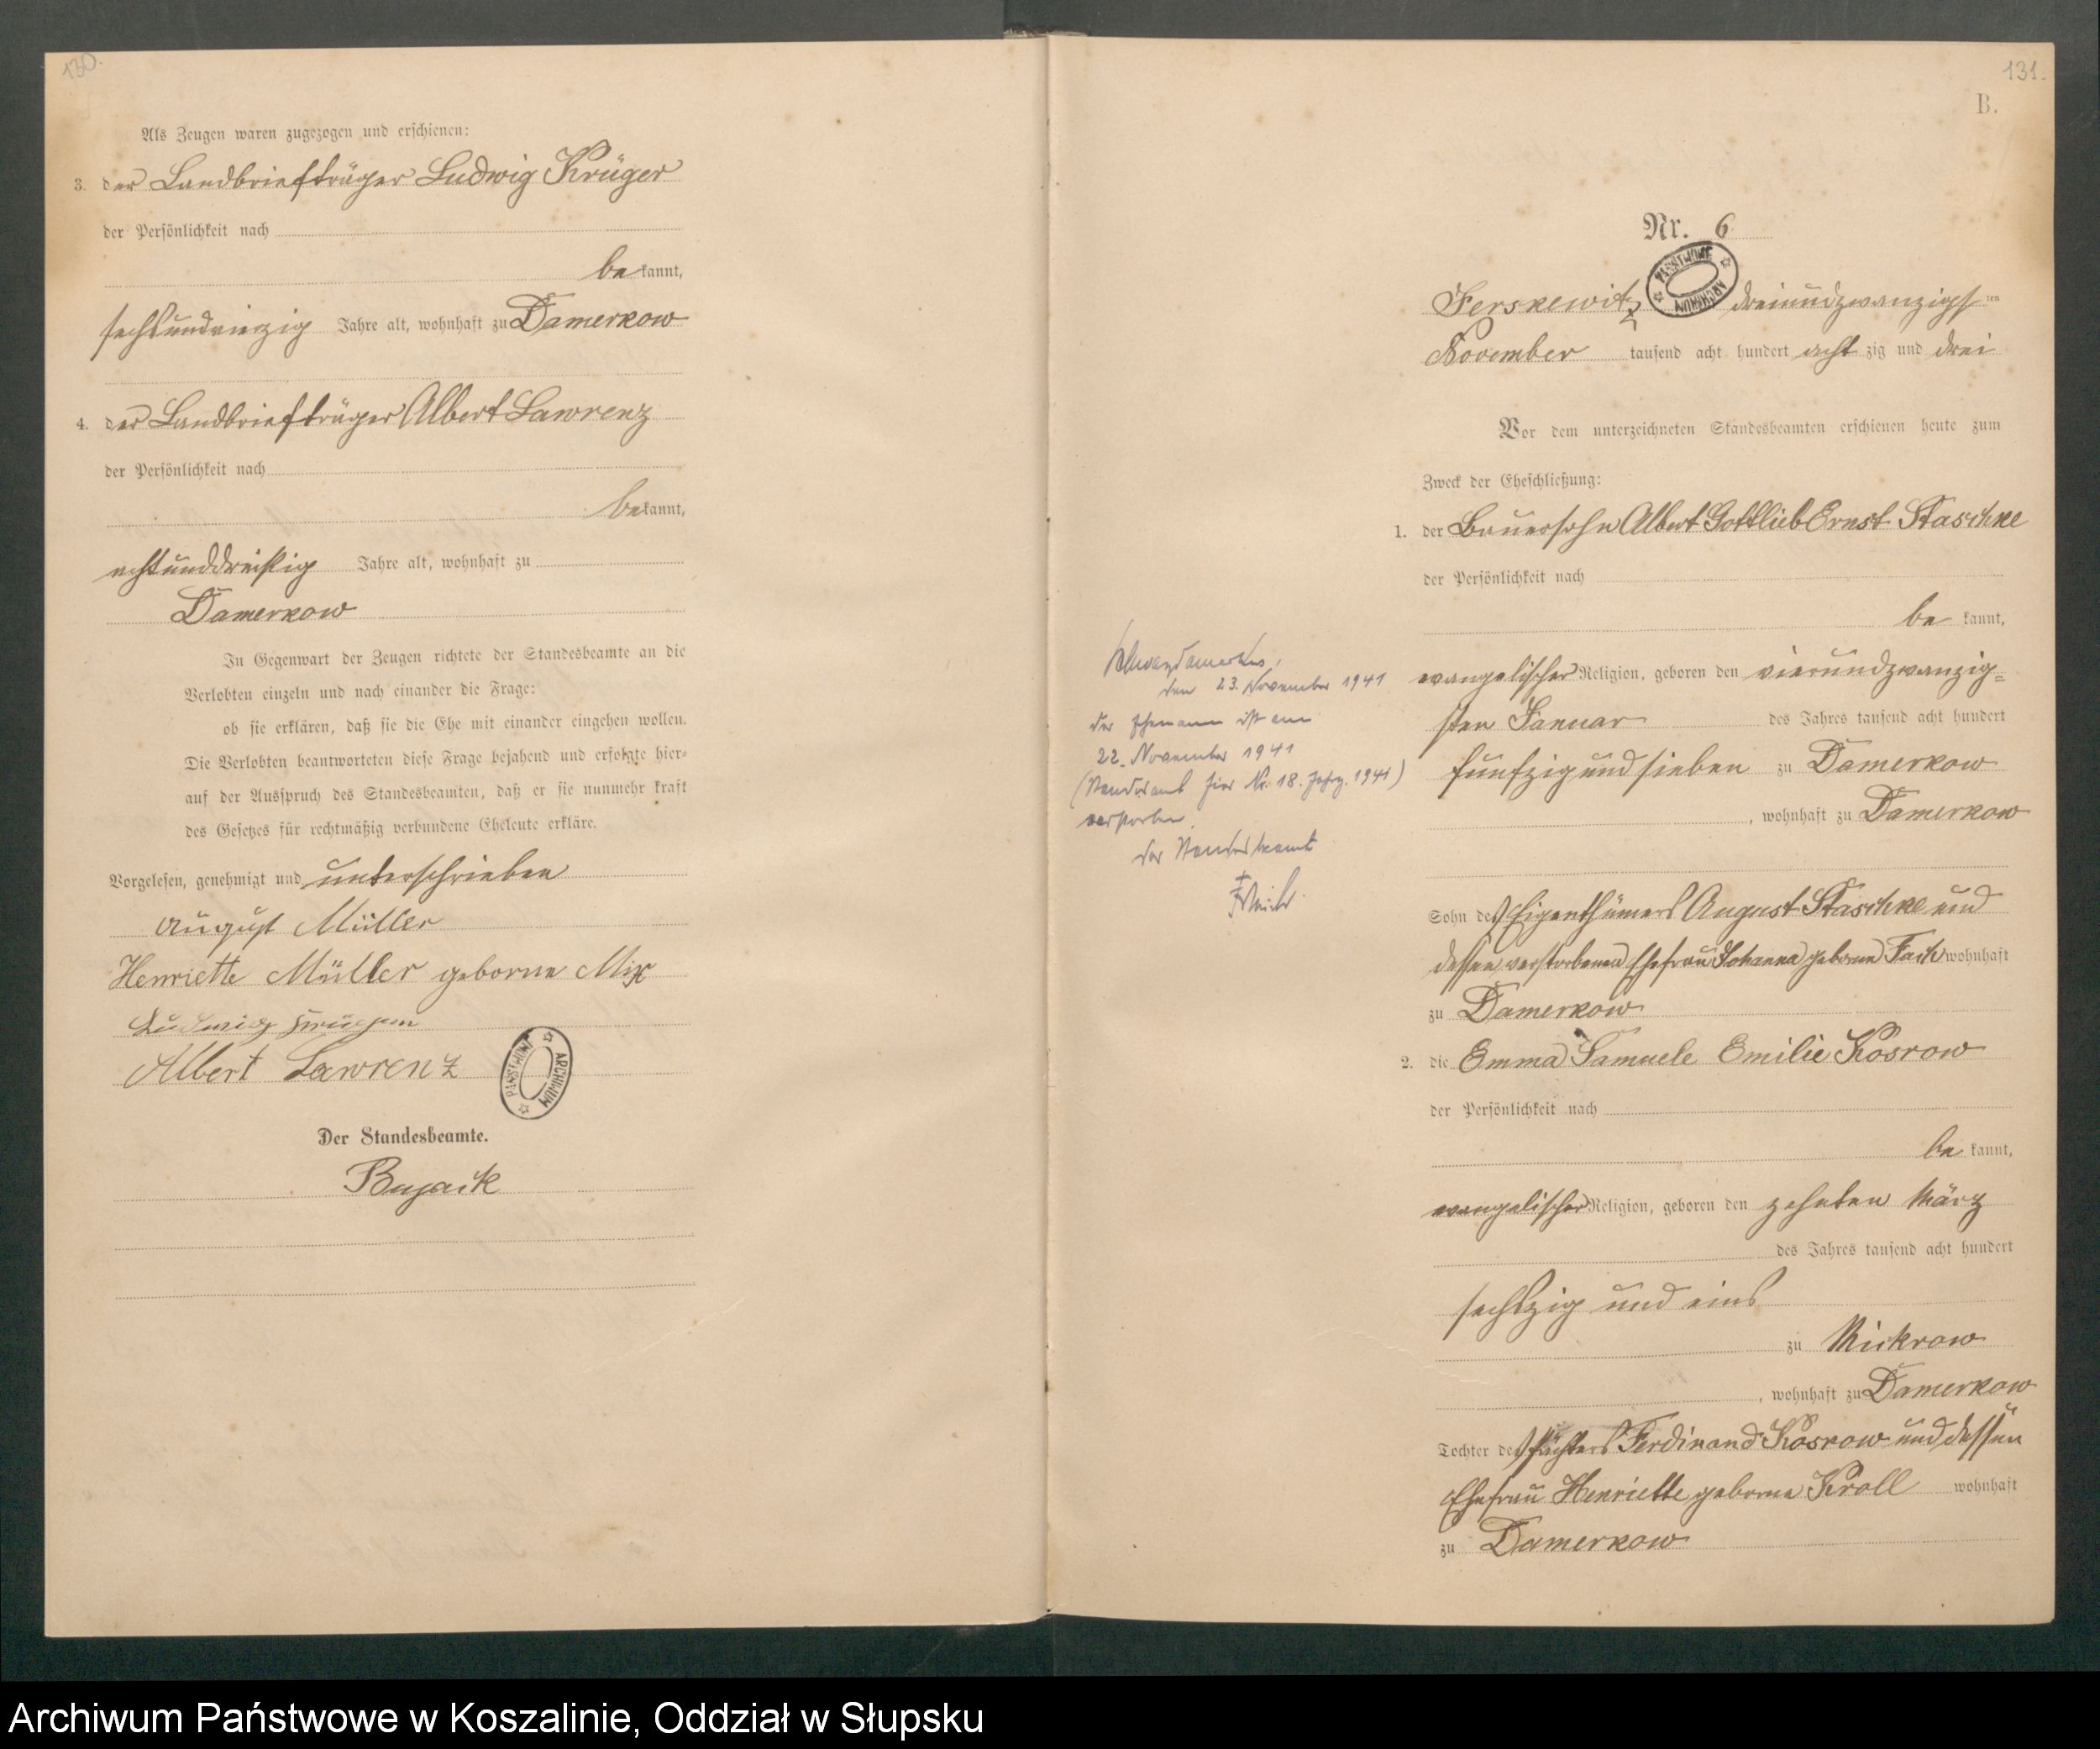 130.
Als Zeugen waren zugezogen und erschienen:
3. der Landbriefträger Ludwig Krüger
der Persönlichkeit nach
be kannt,
sechsundvierzig Jahre alt, wohnhaft zu Damerkow
4. der Landbriefträger Albert Lawrenz
der Persönlichkeit nach
bekannt,
achtunddreißig Jahre alt, wohnhaft zu
Damerkow
In Gegenwart der Zeugen richtete der Standesbeamte an die
Verlobten einzeln und nach einander die Frage:
ob sie erklären, daß sie die Ehe mit einander eingehen wollen.
Die Verlobten beantworteten diese Frage bejahend und erfolgte hier-
auf der Ausspruch des Standesbeamten, daß er sie nunmehr kraft
des Gesetzes für rechtmäßig verbundene Eheleute erkläre.
Vorgelesen, genehmigt und unterschrieben
August Müller
Henriette Müller geborne Mix
Ludwig Krüger
Albert Lawrenz
ARCHIWUM PAŃSTWOWE
Der Standesbeamte.
Bujack
131.
B.
Nr. 6
ARCHIWUM PAŃSTWOWE
Jerskewitz dreiundzwanzigsten
November tausend acht hundert achtzig und drei
Vor dem unterzeichneten Standesbeamten erschienen heute zum
Zweck der Eheschließung:
1. der Bauersohn Albert Gottlieb Ernst Staschke
der Persönlichkeit nach
be kannt,
evangelischer Religion, geboren den vierundzwanzig=
sten Januar des Jahres tausend acht hundert
fünfzig und sieben zu Damerkow
, wohnhaft zu Damerkow
Sohn des Eigenthümers August Staschke und
dessen verstorbenen Ehefrau Johanna geborne wohnhaft
zu Damerkow
2. die Emma Samuele Emilie Kosrow
der Persönlichkeit nach
be kannt,
evangelischer Religion, geboren den zehnten März
des Jahres tausend acht hundert
sechszig und eins
zu Mickrow
, wohnhaft zu Damerkow
Tochter des Pächters Ferdinand Kosrow und dessen
Ehefrau Henriette geborne Kroll wohnhaft
zu Damerkow
Schwarzdamerkow,
den 23. November 1941
der Ehemann ist am
22. November 1941
(Standesamt hier Nr. 18. Jahrg. 1941)
verstorben.
Der Standesbeamte
Archiwum Państwowe w Koszalinie, Oddział w Słupsku